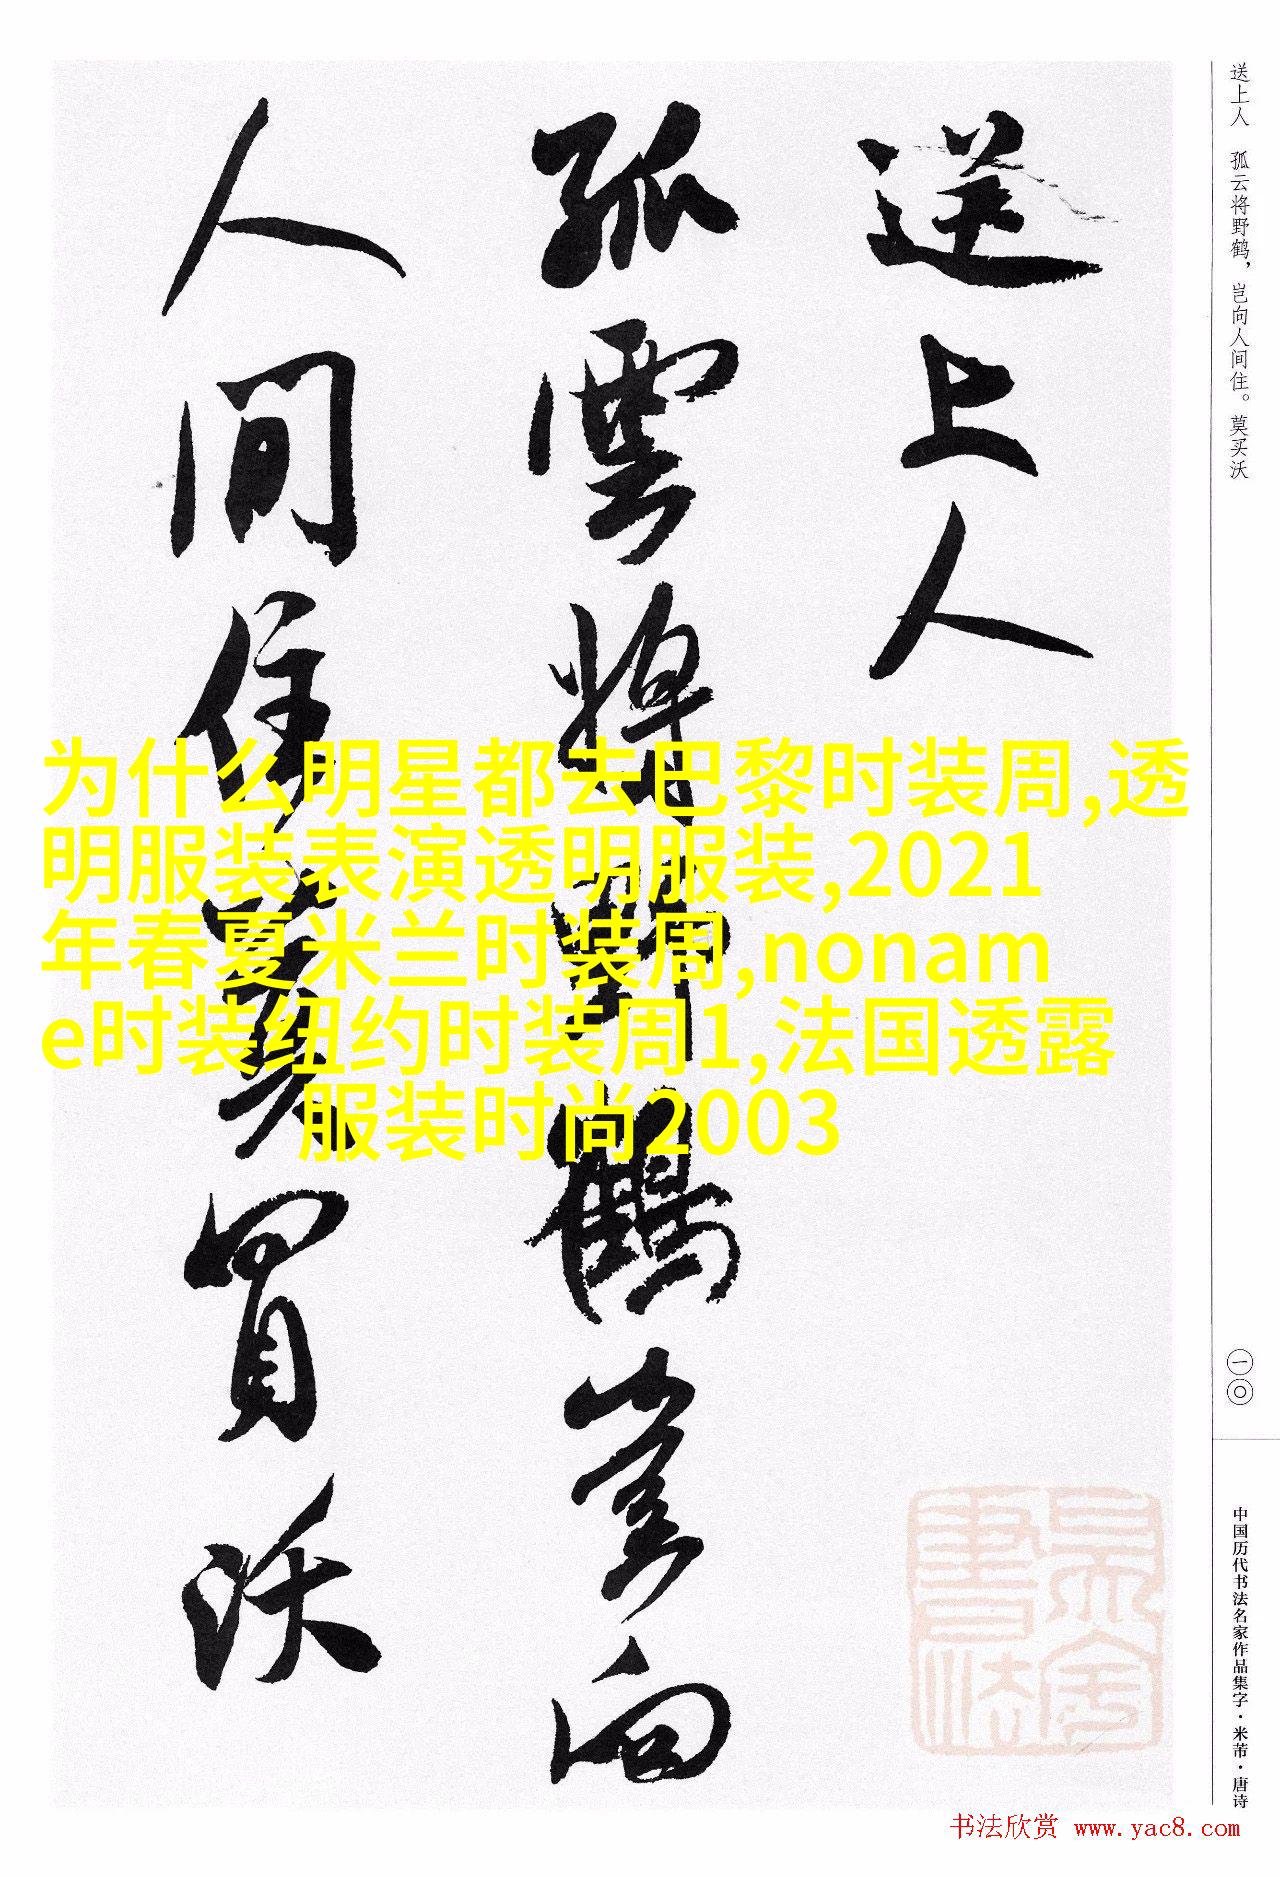 送上人
孤雲將野鶴豈向
人間住莫買沃
送上人 孤云将野鹤，岂向人间住。莫买沃
一〇
中国历代书法名家作品集字·米芾·唐诗
为什么明星都去巴黎时装周,透
明服装表演透明服装,2021
年春夏米兰时装周,nonam
e时装纽约时装周1,法国透露
服装时尚2003
书法欣赏 www.yac8.com